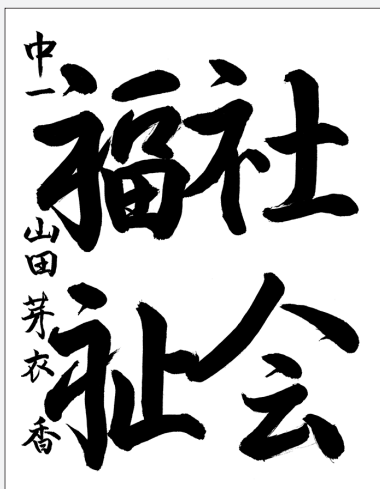 社会
福祉
中一 山田芽衣香